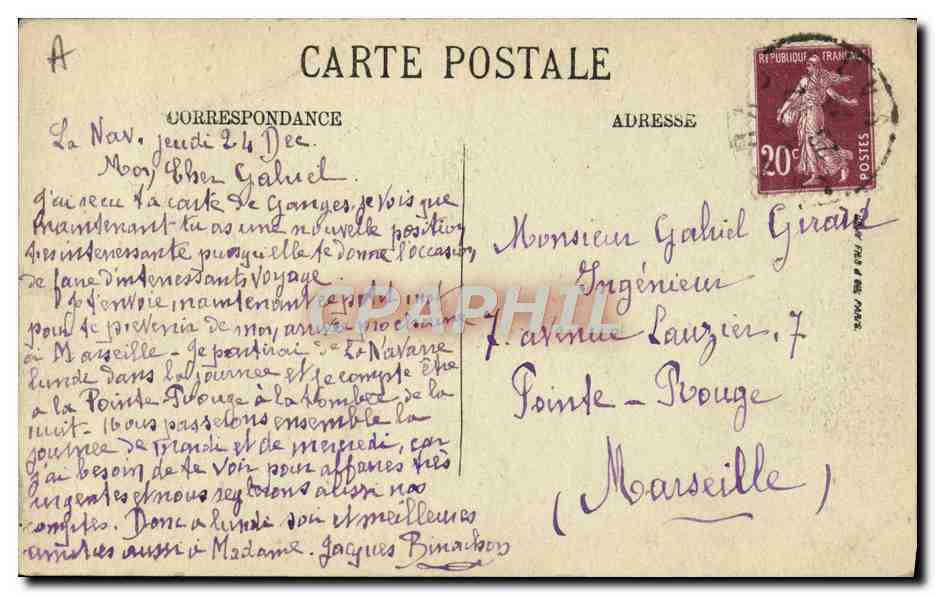 A
CARTE POSTALE
CORRESPONDANCE
ADRESSE
REPUBLIQUE FRANÇAISE
20c
POSTES
La Nav. jeudi 24 Dec.
Mon Cher Gabriel
J'ai reçu ta carte de Ganges, je vois que
maintenant tu as une nouvelle position
tres interessante puisqu'elle te donne l'occasion
de faire d'interessants voyage
Je t'envoie, maintenant ce petit mot
pour te prevenir de mon arrivée prochaine
à Marseille - Je partirai de La Navarre
lundi dans la journée et je compte être
a la Pointe-Rouge à la tombée de la
nuit - Nous passerons ensemble la
journée de Mardi et de mercredi, car
j'ai besoin de te voir pour affaires très
urgentes et nous reglerons aussi nos
comptes. Donc a lundi soir et meilleures
amitiés aussi à Madame. Jacques
Monsieur Gabriel Girard
Ingénieur
7. avenue Lauzier, 7
Pointe - Rouge
(Marseille)
CPAPHIL